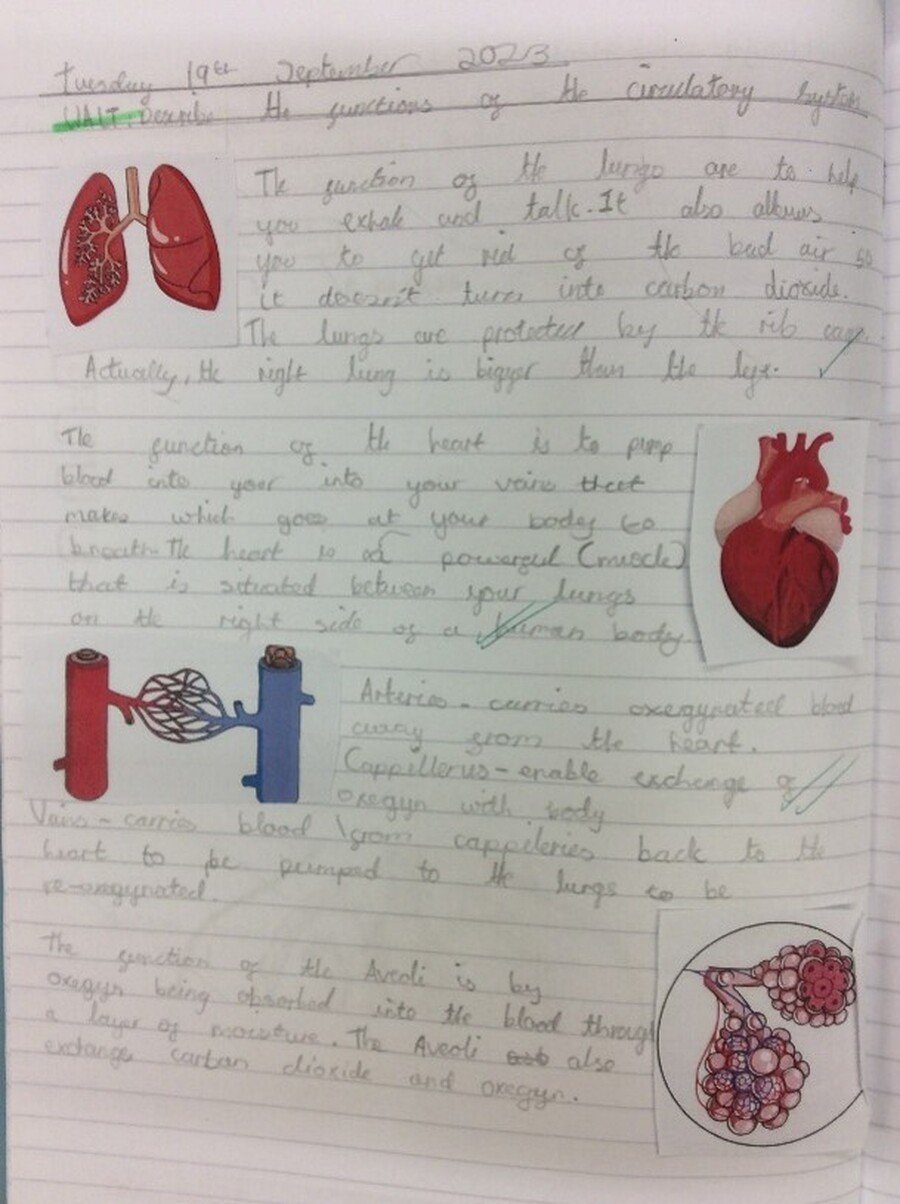 Tuesday 19th September 2023
WALT: Describe the functions of the circulatory system
The function of the lungs are to help
you exhale and talk. It also allows
you to get rid of the bad air so
it doesn't turn into carbon dioxide.
The lungs are protected by the rib cage.
Actually, the right lung is bigger than the left.
The function of the heart is to pump
blood into your into your vains that
makes which goes at your body to
breath. The heart is a powerful (muscle)
that is situated between your lungs
on the right side of a human body
Arteries - carries oxegynated blood
away from the heart.
Cappillerus - enable exchange of
oxegyn with body
Vains - carries blood from cappileries back to the
heart to be pumped to the lungs to be
re-oxegynated.
The function of the Aveoli is by
oxegyn being absorbed into the blood through
a layer of moisture. The Aveoli also
exchange carbon dioxide and oxegyn.